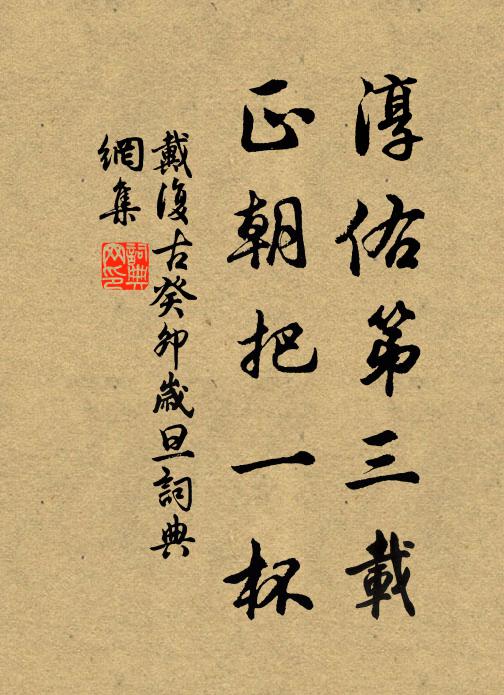 淳佑第三載
正朝把一杯
戴復古癸卯歲旦詞典
網集
詞典
网印